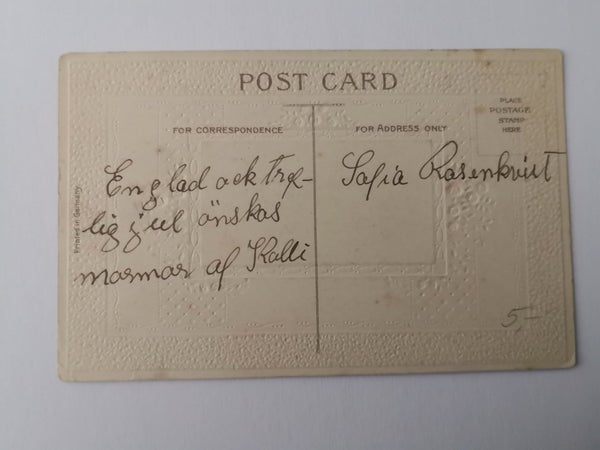 POST CARD
PLACE
POSTAGE
STAMP
HERE
FOR CORRESPONDENCE
FOR ADDRESS ONLY
En glad ock tref-
lig jul önskas
mormor af Kalli
Sofia Rosenkvist
Printed in Germany
5,-